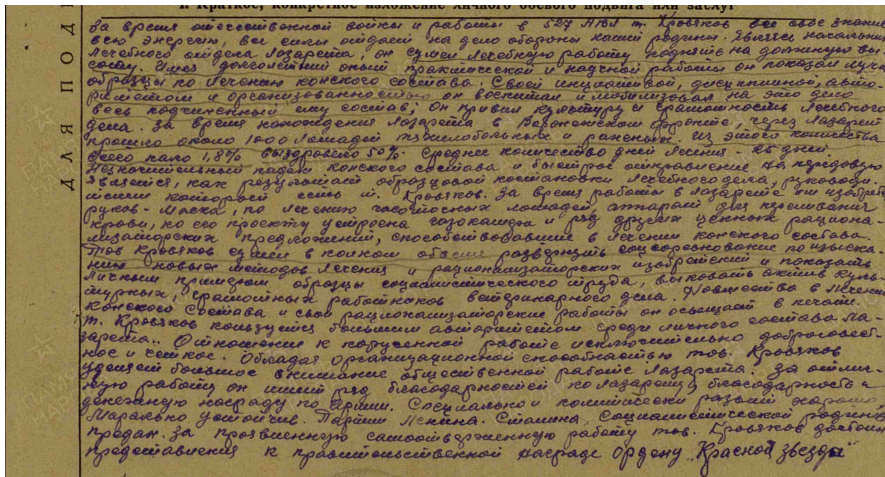 I Краткое, конкретное изложение личного боевого подвига или заслуг
ДЛЯ ПОД
За время отечественной войны и работы в 527 АВЛ т. Кровяков все свое знание
всю энергию, все силы отдает на дело обороны нашей родины. Являясь начальник
лечебного отдела лазарета он сумел лечебную работу поднять на должную вы-
соту. Имея долголетний опыт практической и научной работы он показал лучш
образцы по лечению конского состава. Своей инициативой, дисциплиной, авто-
ритетом и организованностью он воспитал и мобилизовал на это дело
весь подчиненный ему состав; он привил культуру и грамотность лечебного
дела. За время нахождения лазарета в Воронежском фронте через лазарет
прошло около 1000 лошадей тяжелобольных и раненых. Из этого количества
всего пало 1,8% выздоровело 50% Среднее количество дней лечения - 26 дней.
Незначительный падеж конского состава и быстрое отправление на передовую
является, как результат образцовой постановки лечебного дела, руководи-
телем которой есть т. Кровяков. За время работы в лазарете он изобрел
рукав - маска, по лечению чесоточных лошадей аппарат для переливания
крови, по его проекту устроена газокамера и ряд других ценных рациона-
лизаторских предложений, способствовавшие в лечении конского состава.
Тов Кровяков сумел в конском развернуть соцсоревнование по изыска-
нию новых методов лечения и рационализаторских изобретений и показать
личным примером образцы социалистического труда, выковать актив куль-
турных, грамотных работников ветеринарного дела. Новшества в лечении
конского состава и свои рационализаторские работы он освещает в печати.
т. Кровяков пользуется большим авторитетом среди личного состава ла-
зарета. Отношение к порученной работе исключительно добросовест-
ное и четкое. Обладая организационной способностью тов. Кровяков
уделяет большое внимание общественной работе лазарета. За отлич-
ную работу он имеет ряд благодарностей по лазарету, благодарность и
денежную награду по Армии. Социально и политически развит хорошо
Морально устойчив. Партии Ленина, Сталина, социалистической родине
предан. За проявленную самоотверженную работу тов. Кровяков достоин
представления к правительственной награде ордену „Красной звезды"